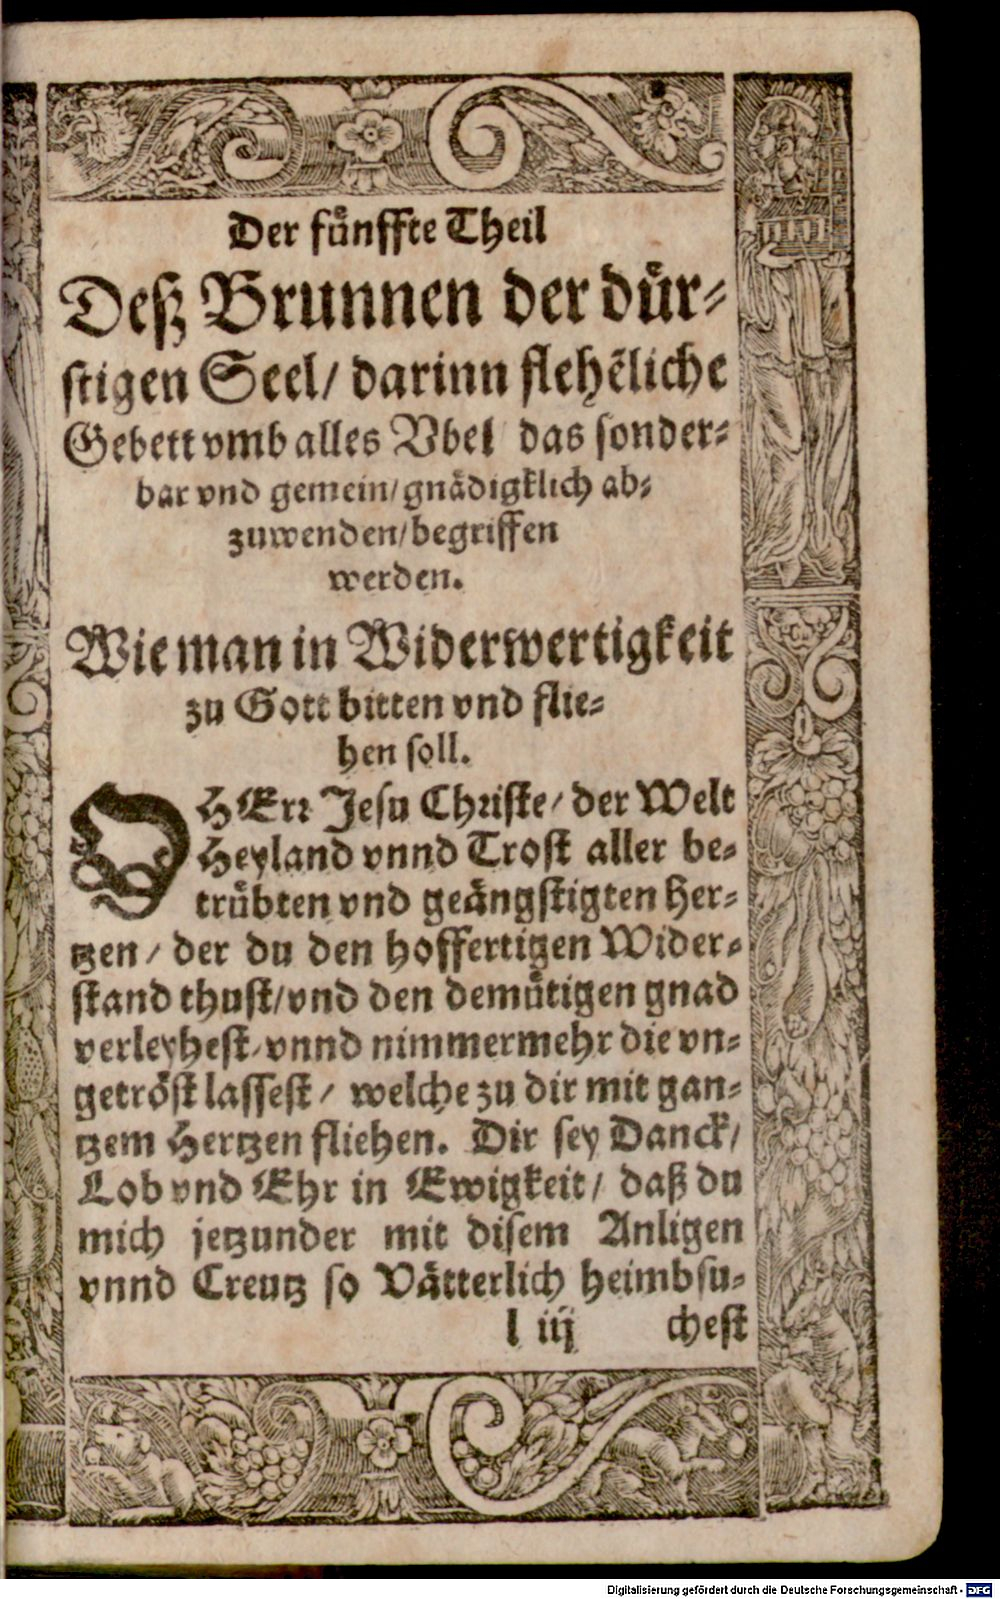 Der fuͤnffte Theil
Deß Brunnen der duͤr⸗
stigen Seel/ darinn flehẽliche
Gebett vmb alles Vbel das sonder⸗
bar vnd gemein/ gnaͤdigklich ab⸗
zuwenden/ begriffen
werden.
Wie man in Widerwertigkeit
zu Gott bitten vnd flie⸗
hen soll.
O HErr Jesu Christe/ der Welt
Heyland vnnd Trost aller be⸗
truͤbten vnd geaͤngstigten Her⸗
tzen/ der du den hoffertigen Wider⸗
stand thust/ vnd den demuͤtigen gnad
verleyhest/ vnnd nimmermehr die vn⸗
getroͤst lassest/ welche zu dir mit gan⸗
tzem Hertzen fliehen. Dir sey Danck/
Lob vnd Ehr in Ewigkeit/ daß du
mich jetzunder mit disem Anligen
vnnd Creutz so Vaͤtterlich heimbsu⸗
l iij chest
Digitalisierung gefördert durch die Deutsche Forschungsgemeinschaft - DFG